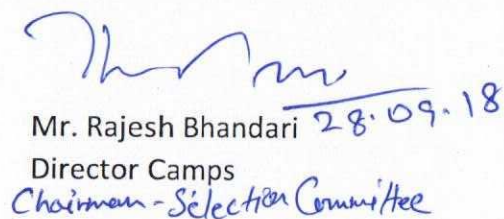 Mr. Rajesh Bhandari 28.09.18
Director Camps
Chairman - Selection Committee